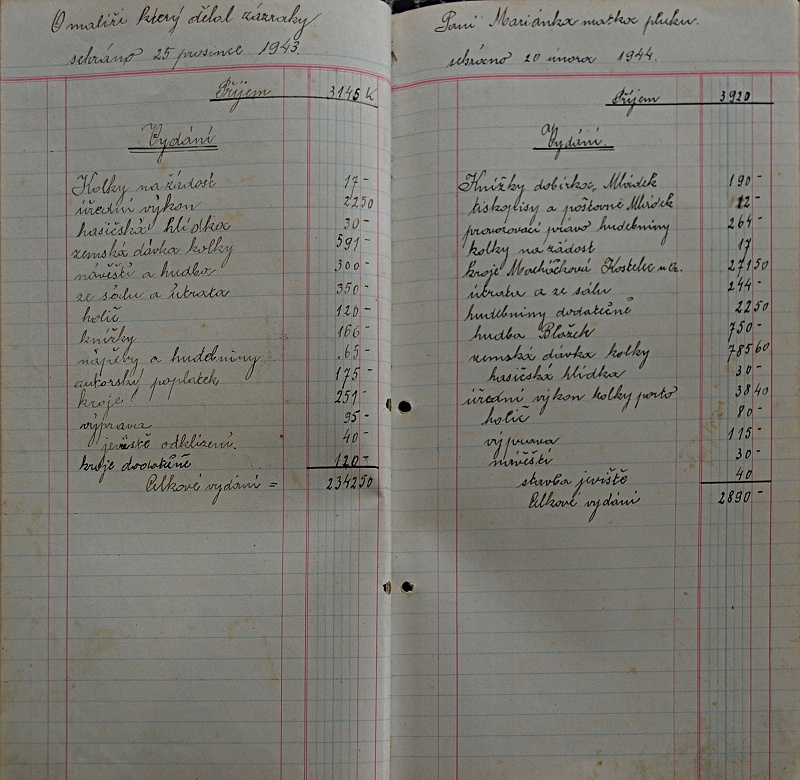 O malíři který dělal zázraky
sehráno 25 prosince 1943.
Příjem 3145 K
Vydání
Kolky na žádost 17 -
úřední výkon 22 50
hasičská hlídka 30 -
zemská dávka kolky 591 -
návěští a hudba 300 -
ze sálu a útrata 350 -
holič 120 -
knížky 166 -
nápěby a hudebniny 65 -
autorský poplatek 175 -
kroje 251 -
výprava 95 -
jeviště odklizení. 40 -
kroje dodatečně 120 -
Celkové vydání = 2342 50
Paní Mariánka matka pluku.
sehráno 20 února 1944.
Příjem 3920
Vydání.
Knížky dobírka, Mládek 190 -
tiskopisy a poštovné Mládek 12 -
provozovací právo hudebniny 264 -
kolky na žádost 17
kroje Macháčková Kostelec n Or. 271 50
útrata a ze sálu 244 -
hudebniny dodatečně 22 50
hudba Blažek 750 -
zemská dávka kolky 785 60
hasičská hlídka 30 -
úřední výkon kolky porto 38 40
holič 80 -
výprava 115 -
návěští 30 -
stavba jeviště 40
Celkové vydání 2890 -